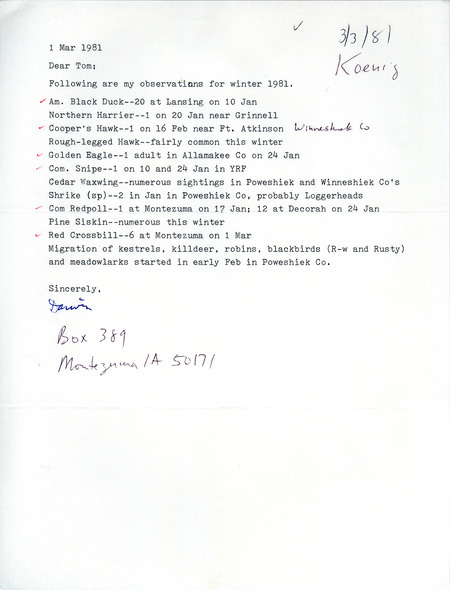 3/3/81
Koenig
1 Mar 1981
Dear Tom;
Following are my observations for winter 1981.
Am. Black Duck--20 at Lansing on 10 Jan
Northern Harrier--1 on 20 Jan near Grinnell
Cooper's Hawk--1 on 16 Feb near Ft. Atkinson Winneshiek Co
Rough-legged Hawk--fairly common this winter
Golden Eagle--1 adult in Allamakee Co on 24 Jan
Com. Snipe--1 on 10 and 24 Jan in YRF
Cedar Waxwing--numerous sightings in Poweshiek and Winneshiek Co's
Shrike (sp)--2 in Jan in Poweshiek Co, probably Loggerheads
Com Redpoll--1 at Montezuma on 17 Jan; 12 at Decorah on 24 Jan
Pine Siskin--numerous this winter
Red Crossbill--6 at Montezuma on 1 Mar
Migration of kestrels, killdeer, robins, blackbirds (R-w and Rusty)
and meadowlarks started in early Feb in Poweshiek Co.
Sincerely,
Darwin
Box 389
Montezuma IA 50171